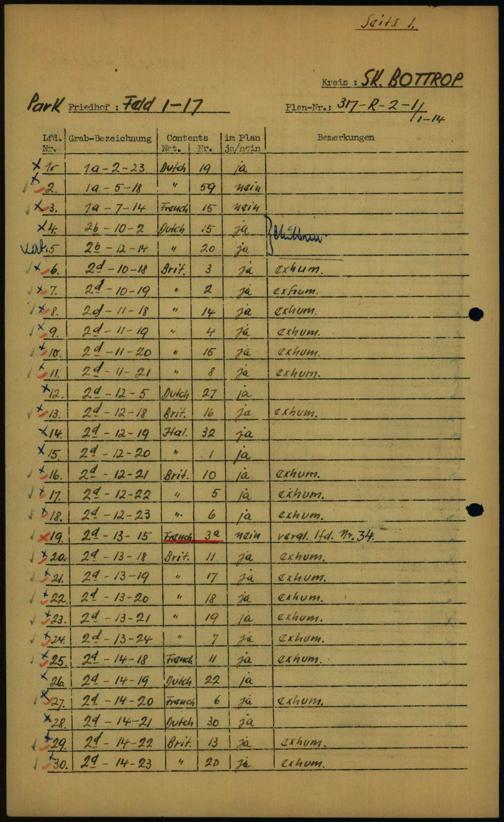 Seite 1.
Kreis : SK. BOTTROP
Park Friedhof : Feld 1-17
Plan-Nr.: 317-R-2-1/
/1-14
Lfd. Grab-Bezeichnung Contents im Plan Bemerkungen
Nr. Nat. Nr. ja/nein
1. 1a-2-23 Dutch 19 ja
2. 1a-5-18 " 59 nein
3. 1a-7-14 French 15 nein
4. 2b-10-2 Dutch 15 ja
5 2b-12-14 " 20 ja
6. 2d-10-18 Brit. 3 ja exhum.
7. 2d-10-19 " 2 ja exhum.
8. 2d-11-18 " 14 ja exhum.
9. 2d-11-19 " 4 ja exhum.
10. 2d-11-20 " 15 ja exhum.
11. 2d-11-21 " 8 ja exhum.
12. 2d-12-5 Dutch 27 ja
13. 2d-12-18 Brit. 16 ja exhum.
14. 2d-12-19 Ital. 32 ja
15. 2d-12-20 " 1 ja
16. 2d-12-21 Brit. 10 ja exhum.
17. 2d-12-22 " 5 ja exhum.
18. 2d-12-23 " 6 ja exhum.
19. 2d-13-15 French 3a nein vergl. lfd. Nr. 34.
20. 2d-13-18 Brit. 11 ja exhum.
21. 2d-13-19 " 17 ja exhum.
22. 2d-13-20 " 18 ja exhum.
23. 2d-13-21 " 19 ja exhum.
24. 2d-13-24 " 7 ja exhum.
25. 2d-14-18 French 11 ja exhum.
26. 2d-14-19 Dutch 22 ja
27. 2d-14-20 French 6 ja exhum.
28. 2d-14-21 Dutch 30 ja
29. 2d-14-22 Brit. 13 ja exhum.
30. 2d-14-23 " 20 ja exhum.